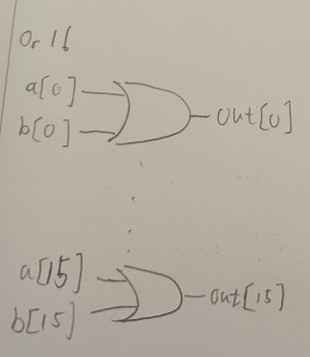 Or 16
a[0]
b[0]
out[0]
a[15]
b[15]
out[15]